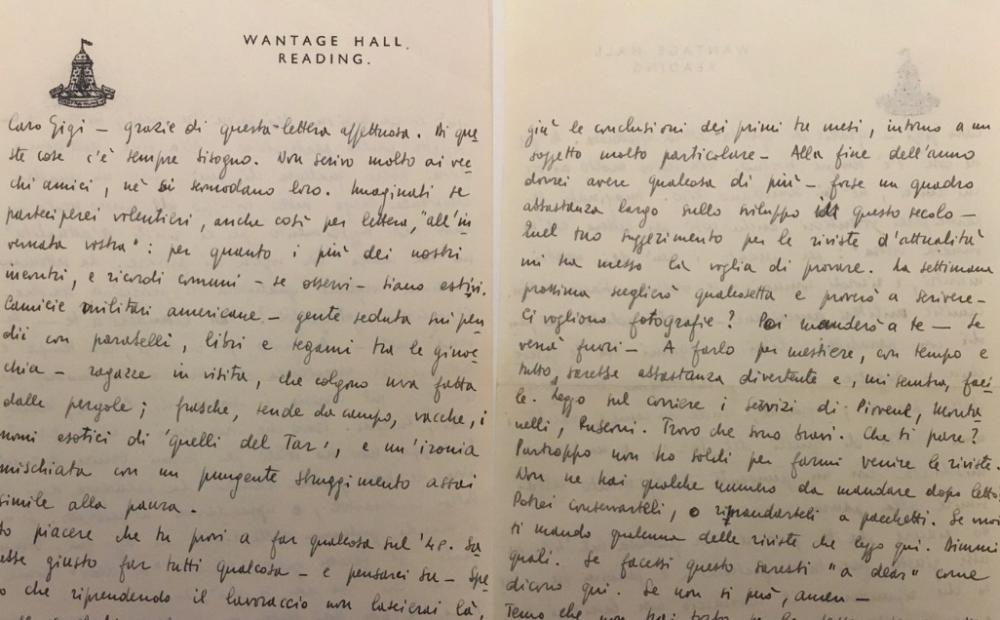 WANTAGE HALL.
READING.
Caro Gigi – grazie di questa lettera affettuosa. Di que
ste cose c'è sempre bisogno. Non scrivo molto ai vec
chi amici, nè si scomodano loro. Imaginati se
parteciperei volentieri, anche così per lettera, "all'in
vernata vostra": per quanto i più dei nostri
incontri, e ricordi comuni – se osservi – siano estivi.
Camicie militari americane – gente seduta sui pen
dii con parabelli, libri e tegami tra le ginoc
chia – ragazze in visita, che colgono uva fatta
dalle pergole; frasche, tende da campo, vacche, i
nomi esotici di 'quelli del Tar', e un'ironia
mischiata con un pungente struggimento assai
simile alla paura.
to piacere che tu provi a far qualcosa sul '48. Sa
esse giusto far tutti qualcosa – e pensarci su – Spe
o che riprendendo il lavoraccio non lascerai là,
giù le conclusioni dei primi tre mesi, intorno a un
soggetto molto particolare – Alla fine dell'anno
dovrei avere qualcosa di più – forse un quadro
abbastanza largo sullo sviluppo questo secolo –
Quel tuo suggerimento per le riviste d'attualità
mi ha messo la voglia di provare. La settimana
prossima sceglierò qualcosetta e proverò a scrivere –
Ci vogliono fotografie? Poi manderò a te – se
verrà fuori – A farlo per mestiere, con tempo e
tutto, sarebbe abbastanza divertente e, mi sembra, faci
le. Leggo sul corriere i servizi di Piovene, Monta
nelli, Trovo che sono bravi. Che ti pare?
Purtroppo non ho soldi per farmi venire le riviste.
Non ne hai qualche numero da mandare dopo letto
Potrei conservarteli, o rimandarteli a pacchetti. Se vuoi
ti mando qualcuna delle riviste che leggo qui. Dimmi
quali. Se facessi questo saresti "a dear" come
dicono qui. Se non si può, amen –
Temo che non hai